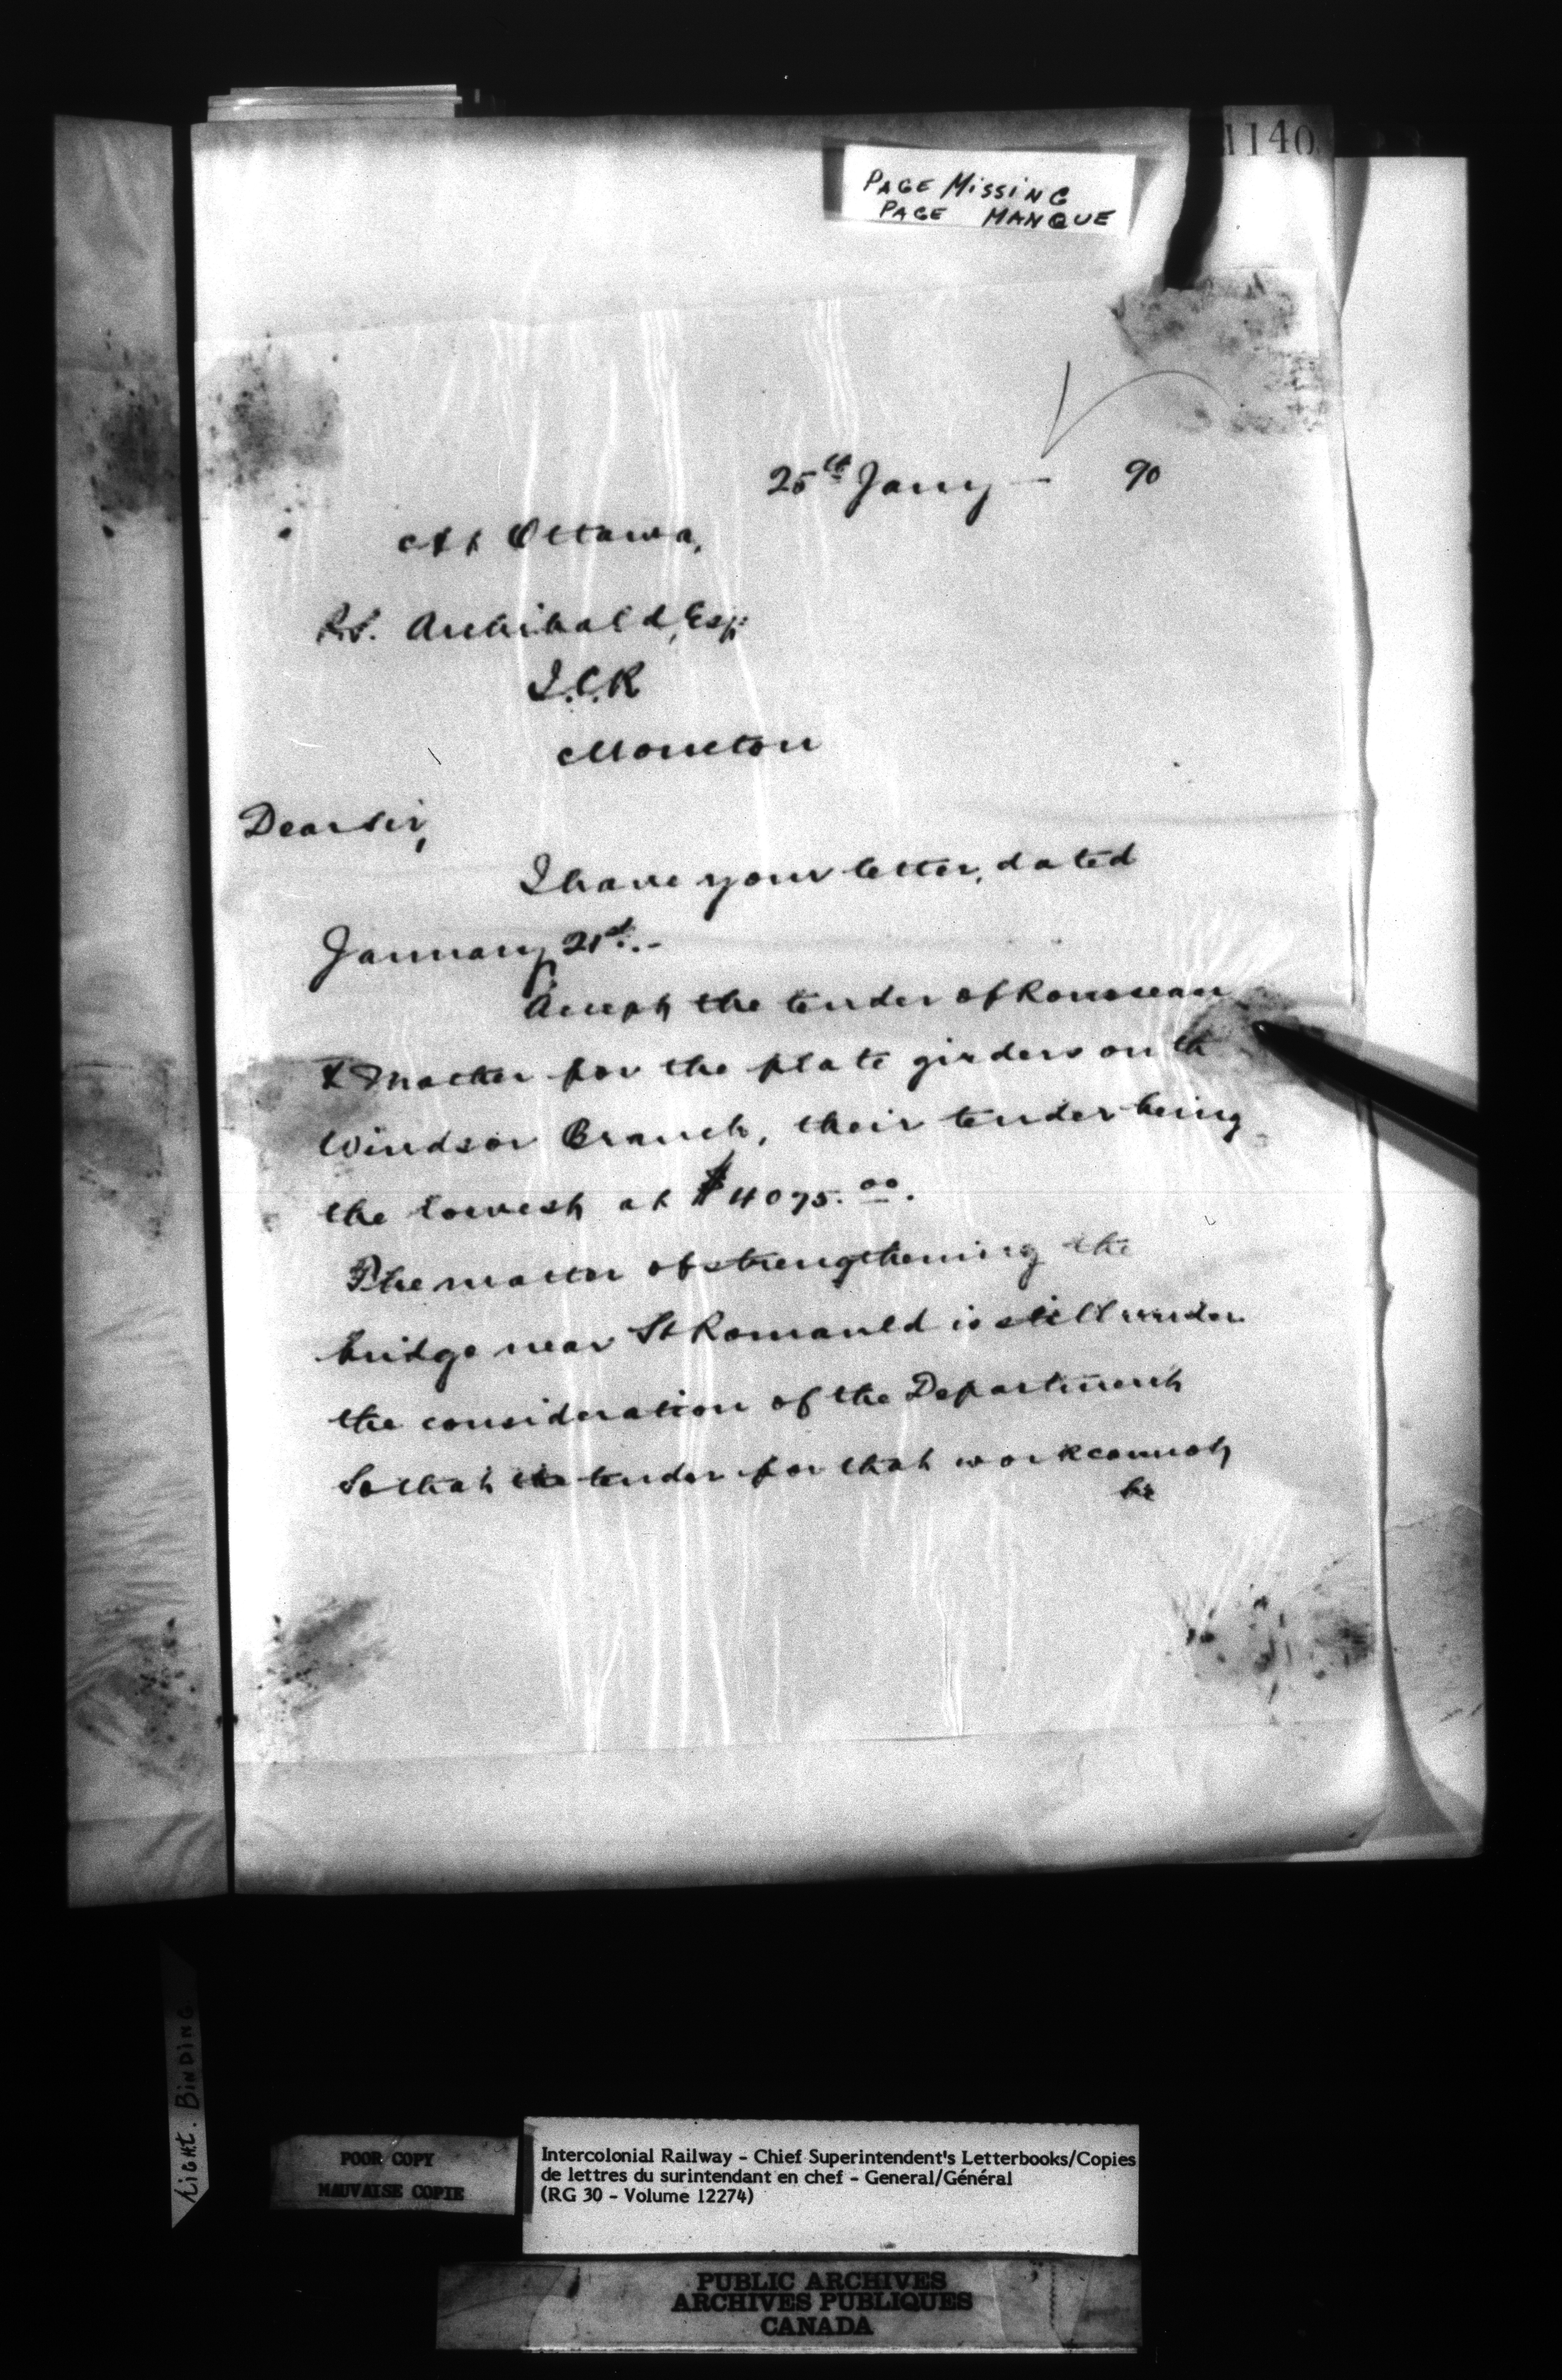 1140
PAGE MISSING
PAGE MANQUE
25th Jany - 90
At Ottawa,
P.S. Archibald, Esq:
I.C.R
Moncton
Dear Sir,
I have your letter, dated
January 21st. -
Accept the tender of Rousseau
& Mather for the plate girders on th
Windsor Branch, their tender being
the lowest at $4075.00.
The matter of strengthening the
bridge near St Romauld is still under
the consideration of the Department
So that the tender for that work cannot
be
Light. BINDING.
POOR COPY
MAUVAISE COPIE
Intercolonial Railway - Chief Superintendent's Letterbooks/Copies
de lettres du surintendant en chef - General/Général
(RG 30 - Volume 12274)
PUBLIC ARCHIVES
ARCHIVES PUBLIQUES
CANADA